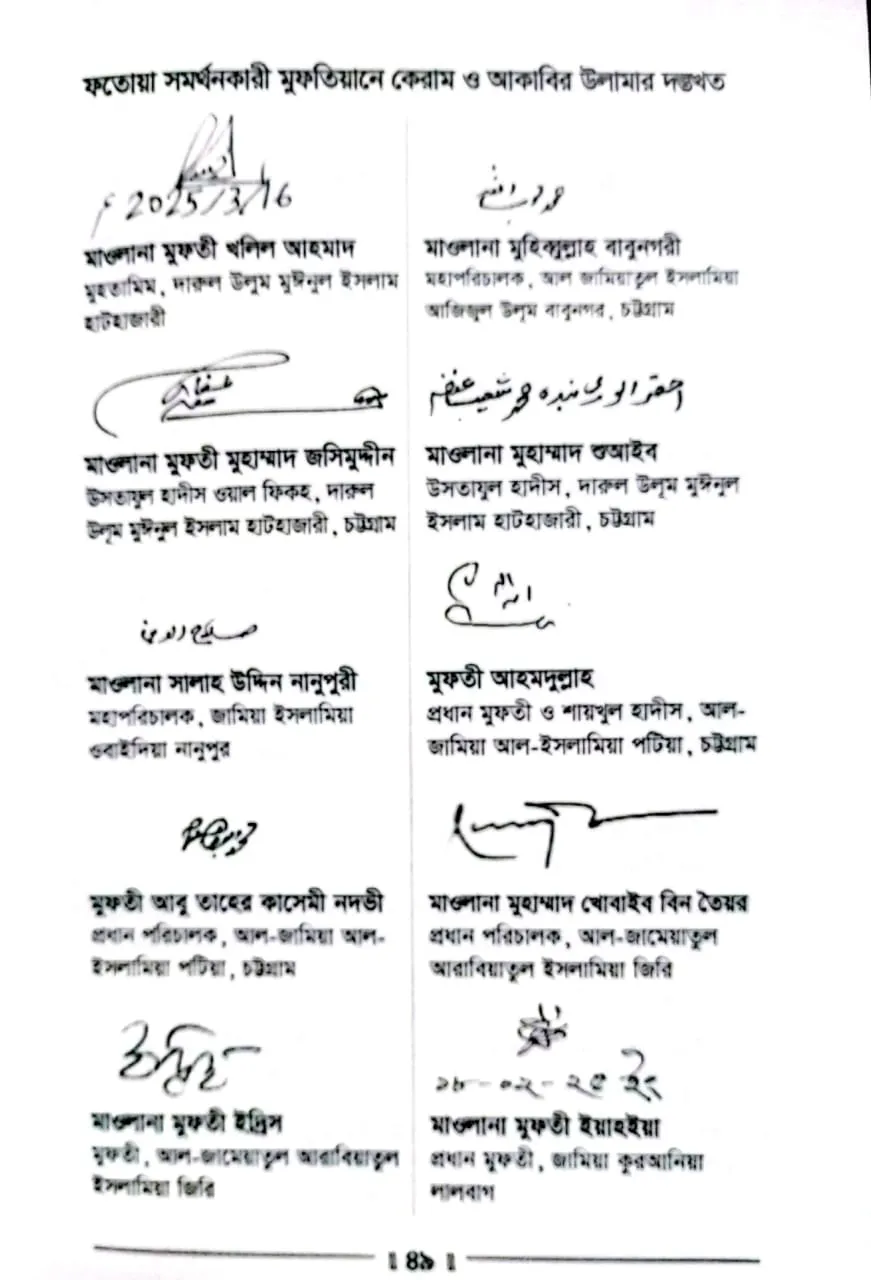 ফতোয়া সমর্থনকারী মুফতিয়ানে কেরাম ও আকাবির উলামার দস্তখত
2025/3/16
মাওলানা মুফতী খলিল আহমাদ
মুহতামিম, দারুল উলূম মুঈনুল ইসলাম
হাটহাজারী
মাওলানা মুহিব্বুল্লাহ বাবুনগরী
মহাপরিচালক, আল জামিয়াতুল ইসলামিয়া
আজিজুল উলূম বাবুনগর, চট্টগ্রাম
মাওলানা মুফতী মুহাম্মাদ জসিমুদ্দীন
উসতাযুল হাদীস ওয়াল ফিকহ, দারুল
উলূম মুঈনুল ইসলাম হাটহাজারী, চট্টগ্রাম
احقر الوری بندہ محمد شعیب عفی عنہ
মাওলানা মুহাম্মাদ শুআইব
উসতাযুল হাদীস, দারুল উলূম মুঈনুল
ইসলাম হাটহাজারী, চট্টগ্রাম
صلاح الدین
মাওলানা সালাহ উদ্দিন নানুপুরী
মহাপরিচালক, জামিয়া ইসলামিয়া
ওবাইদিয়া নানুপুর
মুফতী আহমদুল্লাহ
প্রধান মুফতী ও শায়খুল হাদীস, আল-
জামিয়া আল-ইসলামিয়া পটিয়া, চট্টগ্রাম
মুফতী আবু তাহের কাসেমী নদভী
প্রধান পরিচালক, আল-জামিয়া আল-
ইসলামিয়া পটিয়া, চট্টগ্রাম
মাওলানা মুহাম্মাদ খোবাইব বিন তৈয়ব
প্রধান পরিচালক, আল-জামেয়াতুল
আরাবিয়াতুল ইসলামিয়া জিরি
মাওলানা মুফতী ইদ্রিস
মুফতী, আল-জামেয়াতুল আরাবিয়াতুল
ইসলামিয়া জিরি
১৮-০২-২৫ ইং
মাওলানা মুফতী ইয়াহইয়া
প্রধান মুফতী, জামিয়া কুরআনিয়া
লালবাগ
৪৯